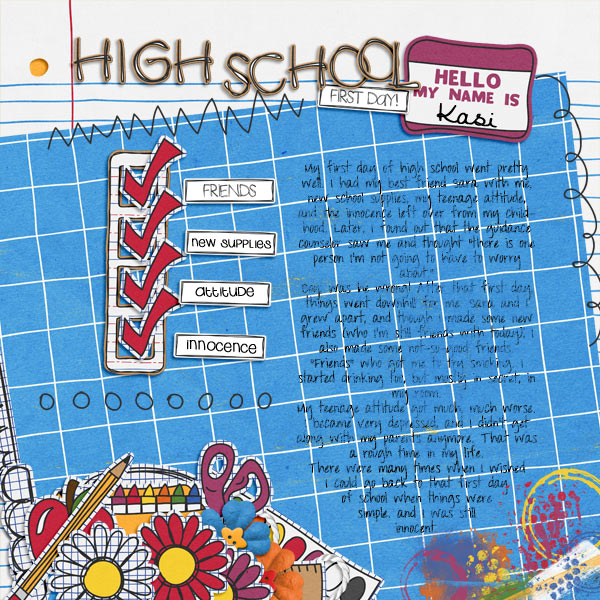 HIGH SCHOOL
FIRST DAY!
HELLO
MY NAME IS
Kasi
FRIENDS
new supplies
attitude
innocence
My first day of high school went pretty
well. I had my best friend Sara with me,
new school supplies, my teenage attitude,
and the innocence left over from my child-
hood. Later, I found out that the guidance
counselor saw me and thought "there is one
person I'm not going to have to worry
about."
Boy, was he wrong! After that first day,
things went downhill for me. Sara and I
grew apart, and though I made some new
friends (who I'm still friends with today), I
also made some not-so-good friends.
"Friends" who got me to try smoking. I
started drinking too, but mostly in secret, in
my room.
My teenage attitude got much, much worse.
I became very depressed, and I didn't get
along with my parents anymore. That was
a rough time in my life.
There were many times when I wished
I could go back to that first day
of school when things were
simple, and I was still
innocent.